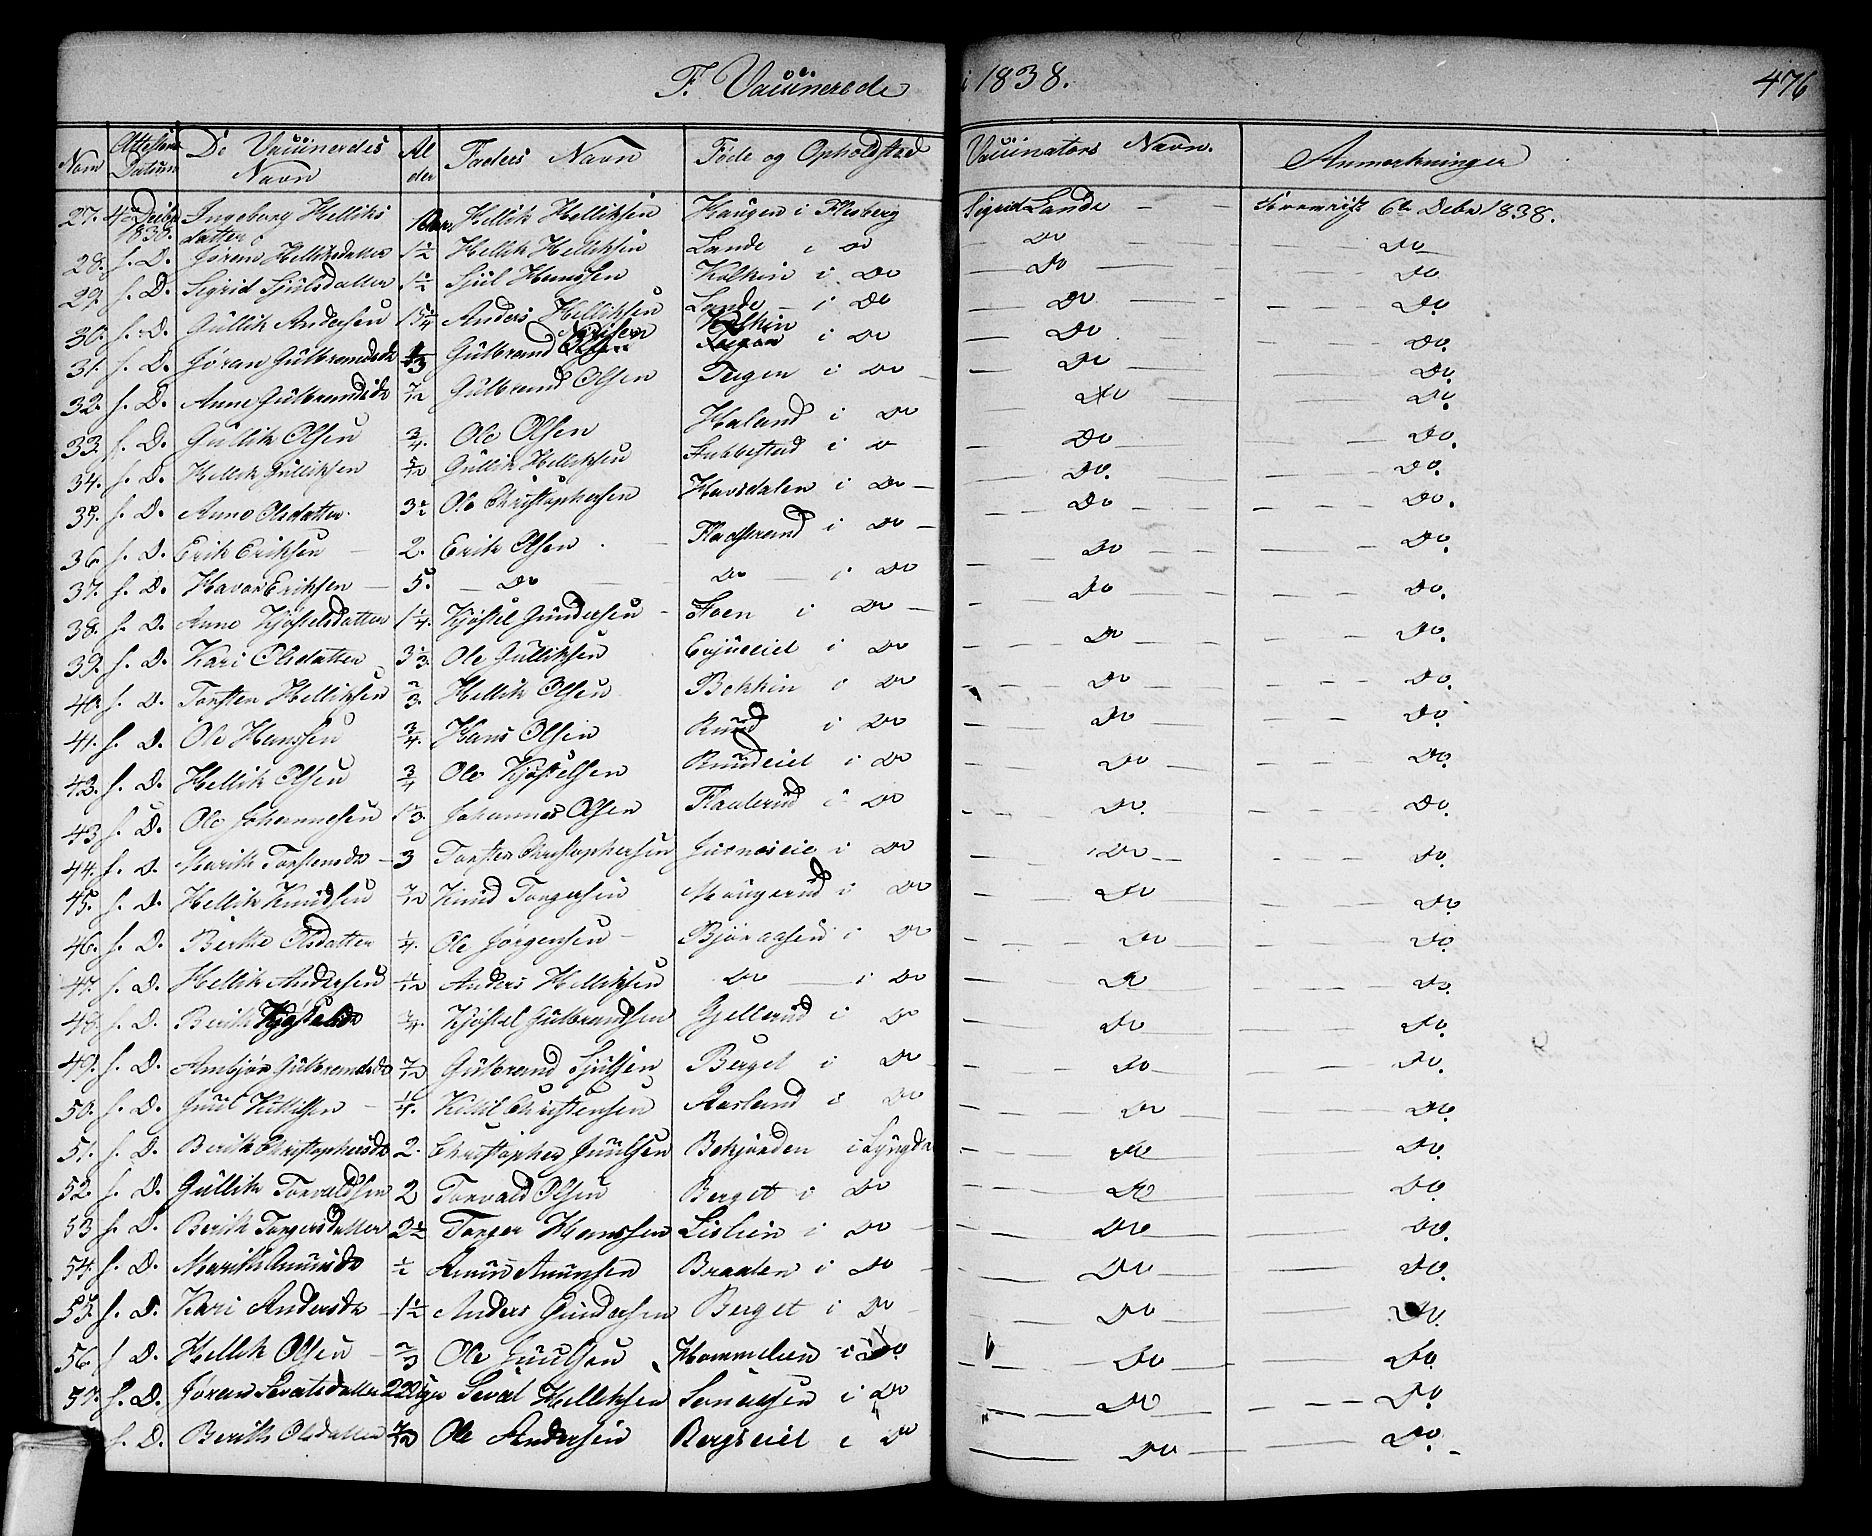 F. Vaccinerede i 1838. 476
Nom Attestens Datum De Vaccineredes Navn Alder Faders Navn Føde og Opholdsted Vaccinators Navn. Anmærkninger
27. 4de Decbr 1838. Ingeborg Helliksdatter Hellik Helliksen Haugen i Flesberg Sigrid Lande - - 6te Decbr 1838.
28. s. D. Jøran Helliksdatter 1½ Hellik Helliksen Lande i Do Do Do
29. s. D. Sigrid Sjulsdatter 1½ Sjul Hanssen Kolkin i Do Do Do
30. s. D. Gullik Andersen Anders Helliksen Lande i Do Do Do
31. s. D. Jøran Gulbrandsdr Gulbrand i Do Do Do.
32. s. D. Anne Gulbrandsdr 7/12 Gulbrand Olsen Teigen i Do Do Do.
33. s. D. Gullik Olsen ¾. Ole Olsen Haland i Do Do Do.
34. s. D. Hellik Gulliksen Gullik Helliksen Lubbestad i Do Do Do.
35. s. D. Anne Olsdatter. 3½ Ole Christophersen Havsdalen i Do Do Do.
36. s. D. Erik Eriksen 2. Erik Olsen Fladstrand i Do Do Do.
37. s. D. Havor Eriksen 5. Do Do i Do Do Do.
38. s. D. Anne Kjøstelsdatter 1¼. Kjøstel Gundersen Foen i Do Do Do.
39. s. D. Kari Olsdatter Ole Gulliksen i Do Do Do.
40. s. D. Torsten Helliksen ⅔. Hellik Olsen Bekkin i Do Do Do.
41. s. D. Ole Hanssen ¾. Hans Olsen Ruud i Do Do Do.
42. s. D. Hellik Olsen ¾ Ole Kjøstelsen Ruudeiet i Do Do Do.
43. s. D. Ole Johannesen 1⅓ Johannes Olsen Flaterud i Do Do. Do.
44. s. D. Marith Torstensdr 3 Torsten Christophersen i Do Do Do.
45. s. D. Hellik Knudsen 7/12 Knud Torgersen Maugerud i Do Do Do.
46. s. D. Berthe Olsdatter ¼. Ole Jörgensen Björaasen i Do Do Do.
47. s. D. Hellik Andersen Anders Helliksen Do i Do Do Do.
48. s. D. Berith Kjøstelsdr ¾. Kjøstel Gulbrandsen Gjellerud i Do Do Do.
49. s. D. Ambjør Gulbrandsdr 7/12 Gulbrand Sjulsen Berget i Do Do Do.
50. s. D. Juul Kittilsen ¼. Kittil Christensen Aasland i Do Do Do.
51. s. D. Berith Christophersdr 2. Christopher Juulsen Bekjorden i Lyngdal Do Do.
52. s. D. Gullik Torvaldsen 2 Torvald Olsen Berget i Do Do Do.
53 s. D. Berith Torgersdatter 2½ Torger Hanssen Lislien i Do Do Do.
54. s. D. Marith Amunsdr ½ Amun Amunsen Braaten i Do Do Do.
55. s. D. Kari Andersdr 1½ Anders Gundersen Berget i Do Do Do.
56. s. D. Hellik Olsen ⅔ Ole Juulsen i Do. Do Do.
57. s. D. Jøran Sevatsdatter Sevat Helliksen i Do Do Do.
s. D. Berith Olsdatter 7/12 Ole Andersen Bergseiet i Do Do Do.